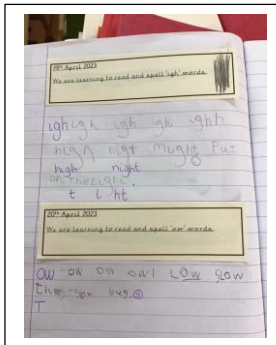 19th April 2023
We are learning to read and spell 'igh' words.
igh igh igh igh ighh
high nigt might Put
high night
on the light.
t l ht
20th April 2023
We are learning to read and spell 'ow' words.
ow ow ow owl Low
bug.
T